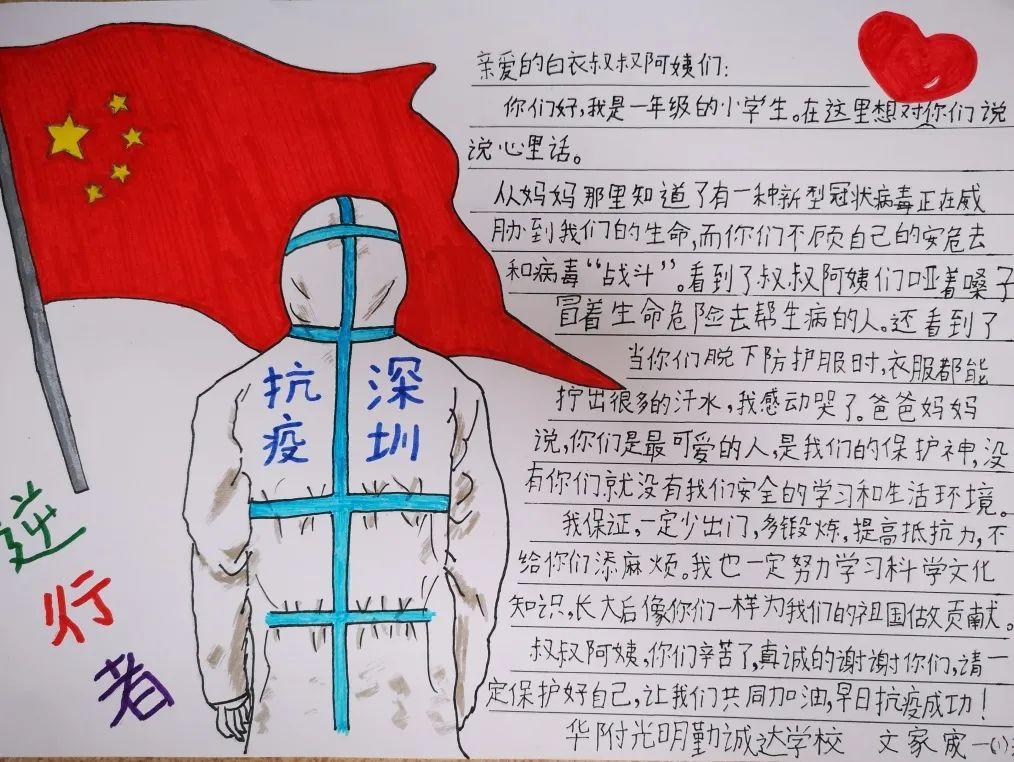 亲爱的白衣叔叔阿姨们:
你们好,我是一年级的小学生。在这里想对你们说
说心里话。
从妈妈那里知道了有一种新型冠状病毒正在威
胁到我们的生命,而你们不顾自己的安危去
和病毒“战斗”。看到了叔叔阿姨们哑着嗓子
冒着生命危险去帮生病的人。还看到了
当你们脱下防护服时,衣服都能
拧出很多的汗水,我感动哭了。爸爸妈妈
说,你们是最可爱的人,是我们的保护神,没
有你们就没有我们安全的学习和生活环境。
我保证,一定少出门,多锻炼,提高抵抗力,不
给你们添麻烦。我也一定努力学习科学文化
知识,长大后像你们一样为我们的祖国做贡献。
叔叔阿姨,你们辛苦了,真诚的谢谢你们,请一
定保护好自己,让我们共同加油,早日抗疫成功!
华附光明勤诚达学校 文家 一(1)
深圳
抗疫
逆行者